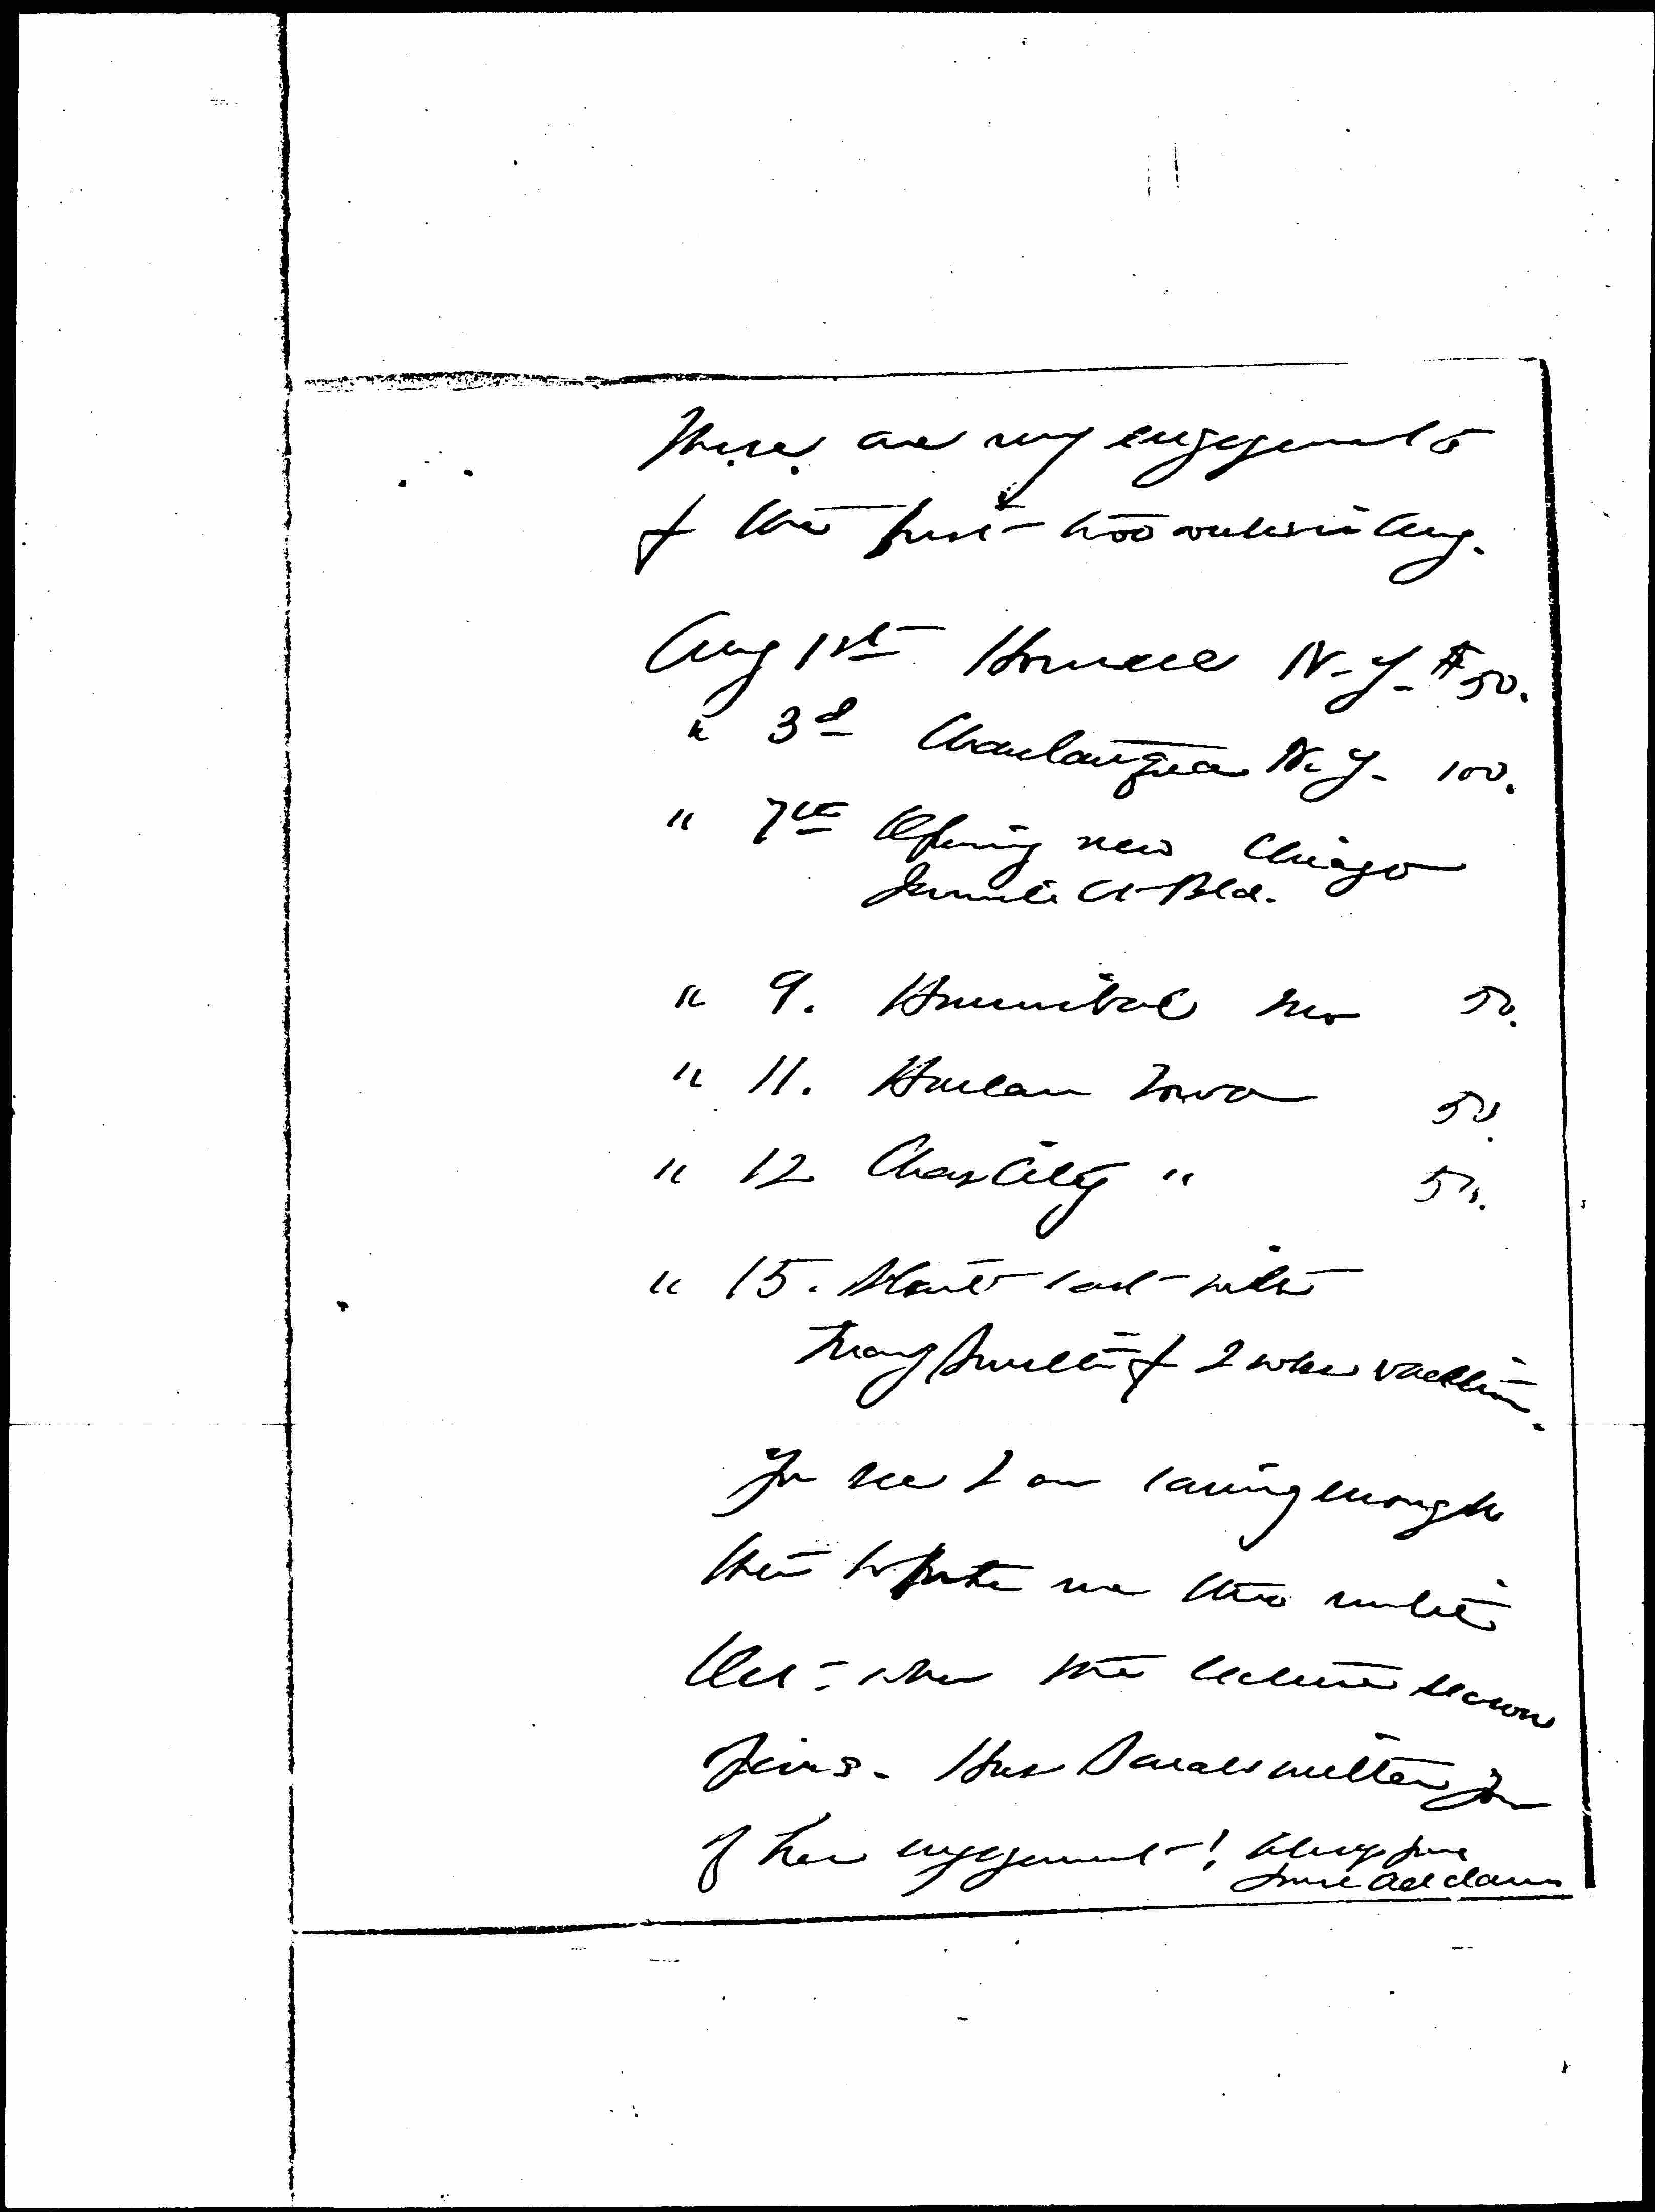 These are my engagements
f the first two weeks in Aug.
Aug 1st Hornell N.Y. $50.
" 3d Chautauqua N.Y. 100.
" 7th Opening new Chicago
Juvenile Ct Bld.
" 9. Hannibal Mo 50.
" 11. Harlan Iowa 50.
" 12 Chas City " 50.
" 15. Start east with
Mary Smith f 2 wks vacation.
Yr see I am earning enough
then to me until
Oct - when the lecture season
begins. Has Sarah written you
of her engagement! Always yrs
Jane Addams